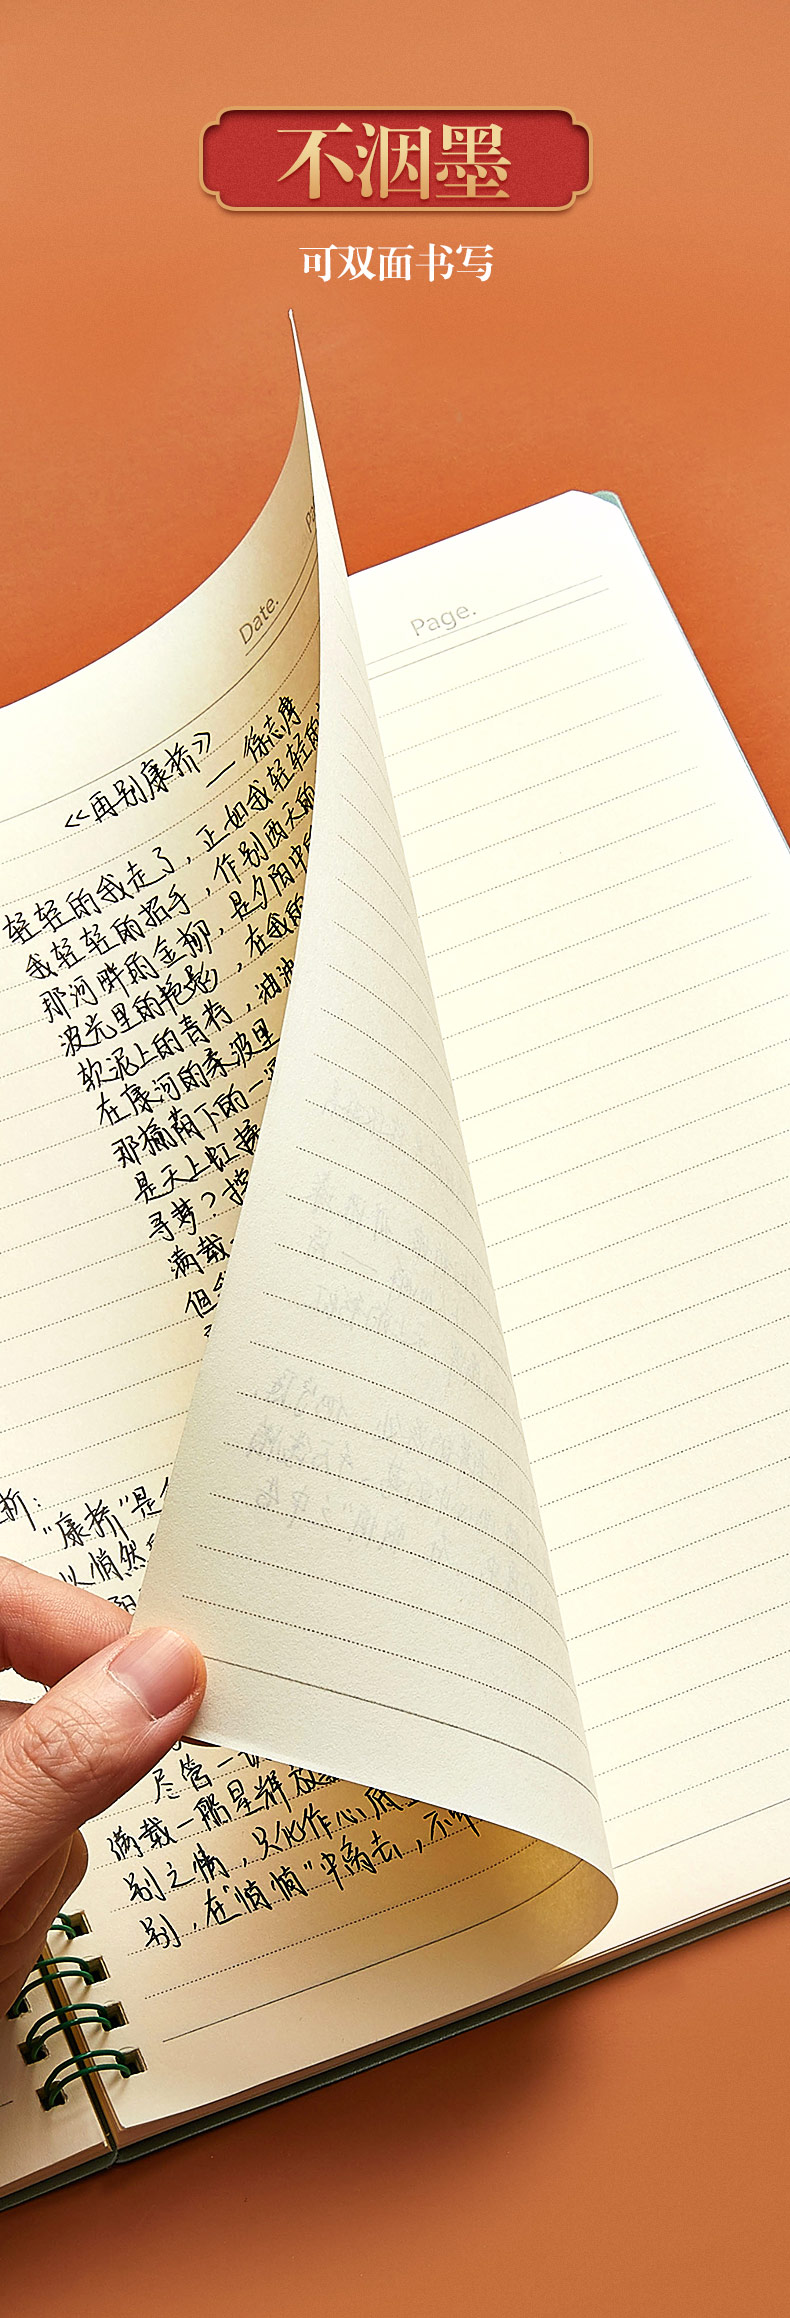 不洇墨
可双面书写
Date.
Page.
《再别康桥》
— 徐志摩
轻轻的我走了，正如我轻轻的
我轻轻的招手，作别西天的
那河畔的金柳，是夕阳中的
波光里的艳影，在我的
软泥上的青荇，油油
在康河的柔波里
那榆荫下的一
是天上虹揉
寻梦？撑
满载
但
析：
"康桥"是
以悄然
阳
尽管一
满载一船星辉放
别之情，只化作心底
别，在"悄悄"中离去，不